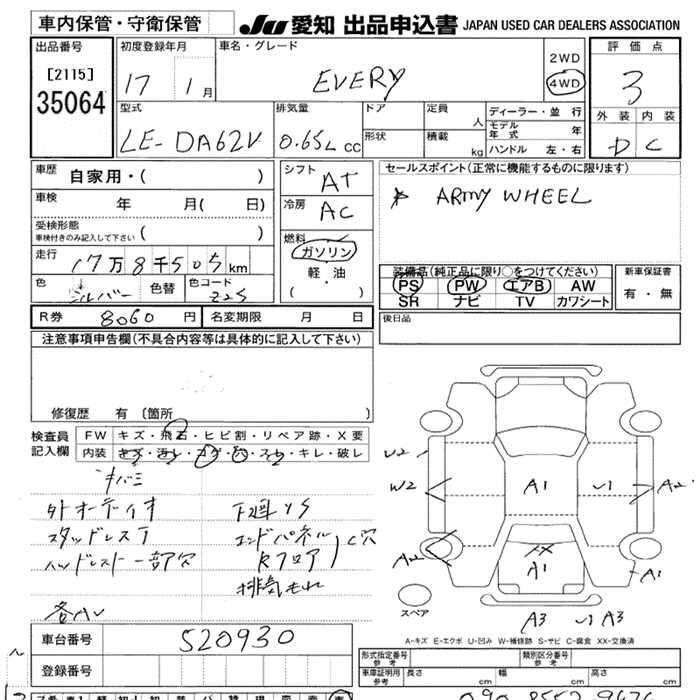 車内保管・守衛保管
JU 愛知 出品申込書 JAPAN USED CAR DEALERS ASSOCIATION
出品番号
[2115]
35064
初度登録年月
17 1月
車名・グレード
EVERY
2WD
4WD
評価点
3
外装 内装
D C
型式
LE-DA62V
排気量
0.65L CC
ドア
形状
定員
人
積載
kg
ディーラー・並行
モデル年式 年
ハンドル 左・右
車歴
自家用・( )
車検
年 月( 日)
受検形態
車検付きのみ記入して下さい ( )
走行
17万8千505km
色
シルバー
色替
色コード
Z2S
シフト
AT
冷房
AC
燃料
ガソリン
軽・油
( ・ )
セールスポイント(正常に機能するものに限ります)
ARMY WHEEL
装備品(純正品に限り○をつけてください)
PS PW エアB AW
SR ナビ TV カワシート
新車保証書
有・無
R券 8060円
名変期限 月 日
後日品
注意事項申告欄(不具合内容等は具体的に記入して下さい)
修復歴 有 [箇所 ]
検査員記入欄
FW キズ・飛石・ヒビ割・リペア跡・X要
内装 キズ・汚レ・コゲ・穴・スレ・キレ・破レ
キバミ
外オーディオ
スタッドレス7
ヘッドレスト一部欠
各AU
下廻りS
エンドパネル
Rフロア
C穴
排気もれ
U2
W2
A2
A1
U1
A2
XX
A1
A1
A3 U1 A3
スペア
A-キズ E-エクボ U-凹み W-補修跡 S-サビ C-腐食 XX-交換済
車台番号
520930
登録番号
形式指定番号 参考
類別区分番号 参考
車庫証明用 参考
長さ cm
幅 cm
高さ cm